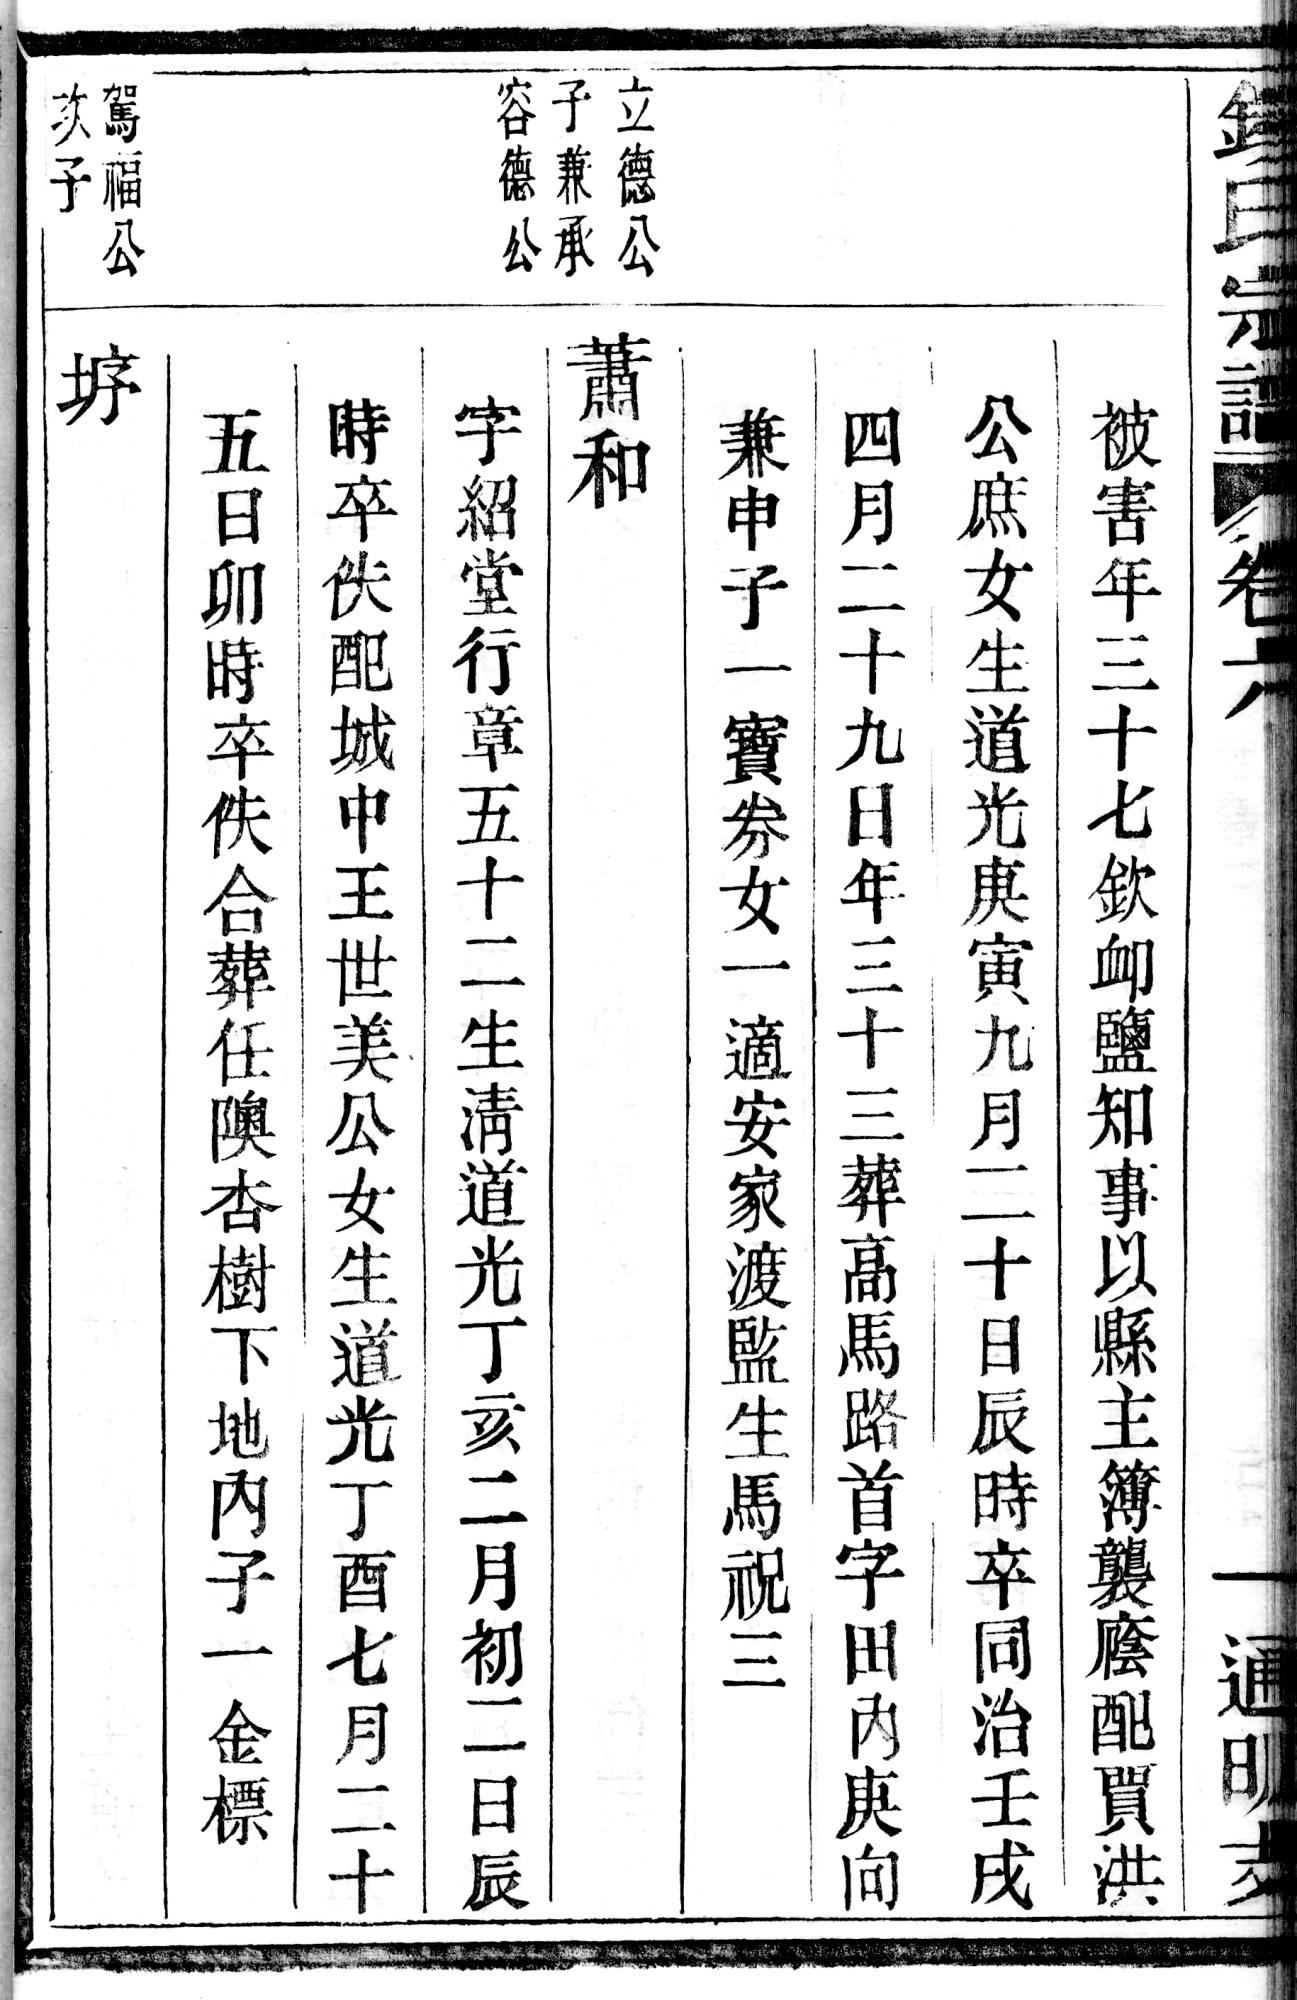 氏宗譜 卷六 一 通明支
被害年三十七欽卹鹽知事以縣主簿襲廕配買洪
公庶女生道光庚寅九月二十日辰時卒同治壬戌
四月二十九日年三十三葬高馬路首字田內庚向
兼申子一寶劵女一適安家渡監生馬祝三
立德公
子兼承
容德公
蕭和
字紹堂行章五十二生清道光丁亥二月初二日辰
時卒佚配城中王世美公女生道光丁酉七月二十
五日卯時卒佚合葬任隩杏樹下地內子一金標
駕福公
次子
垿